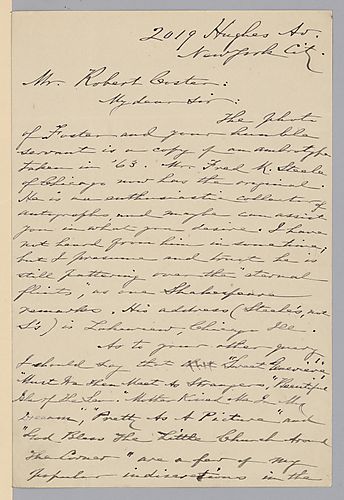 2019 Hughes Av.
New York City.
Mr. Robert Coster:
My dear Sir:
The photo
of Foster and your humble
servant is a copy of an ambrotype
taken in '63. Mr. Fred K. Steele
of Chicago now has the original.
He is an enthusiastic collector of
autographs, and maybe can assist
you in what you desire. I have
not heard from him in sometime,
but I presume and trust he is
still pattering over the eternal
flints", as one Shakespeare
remarks. His address (Steele's, not
S's) is Lakeview, Chicago Ill.
As to your other query,
I should say that "Sweet Genevieve",
"Must We Then Meet As Strangers", "Beautiful
Isle of the Sea" "Mother Kissed Me In My
Dream", "Pretty As A Picture" and
"God Bless The Little Church Around
The Corner" are a few of my
popular indiscretions in the